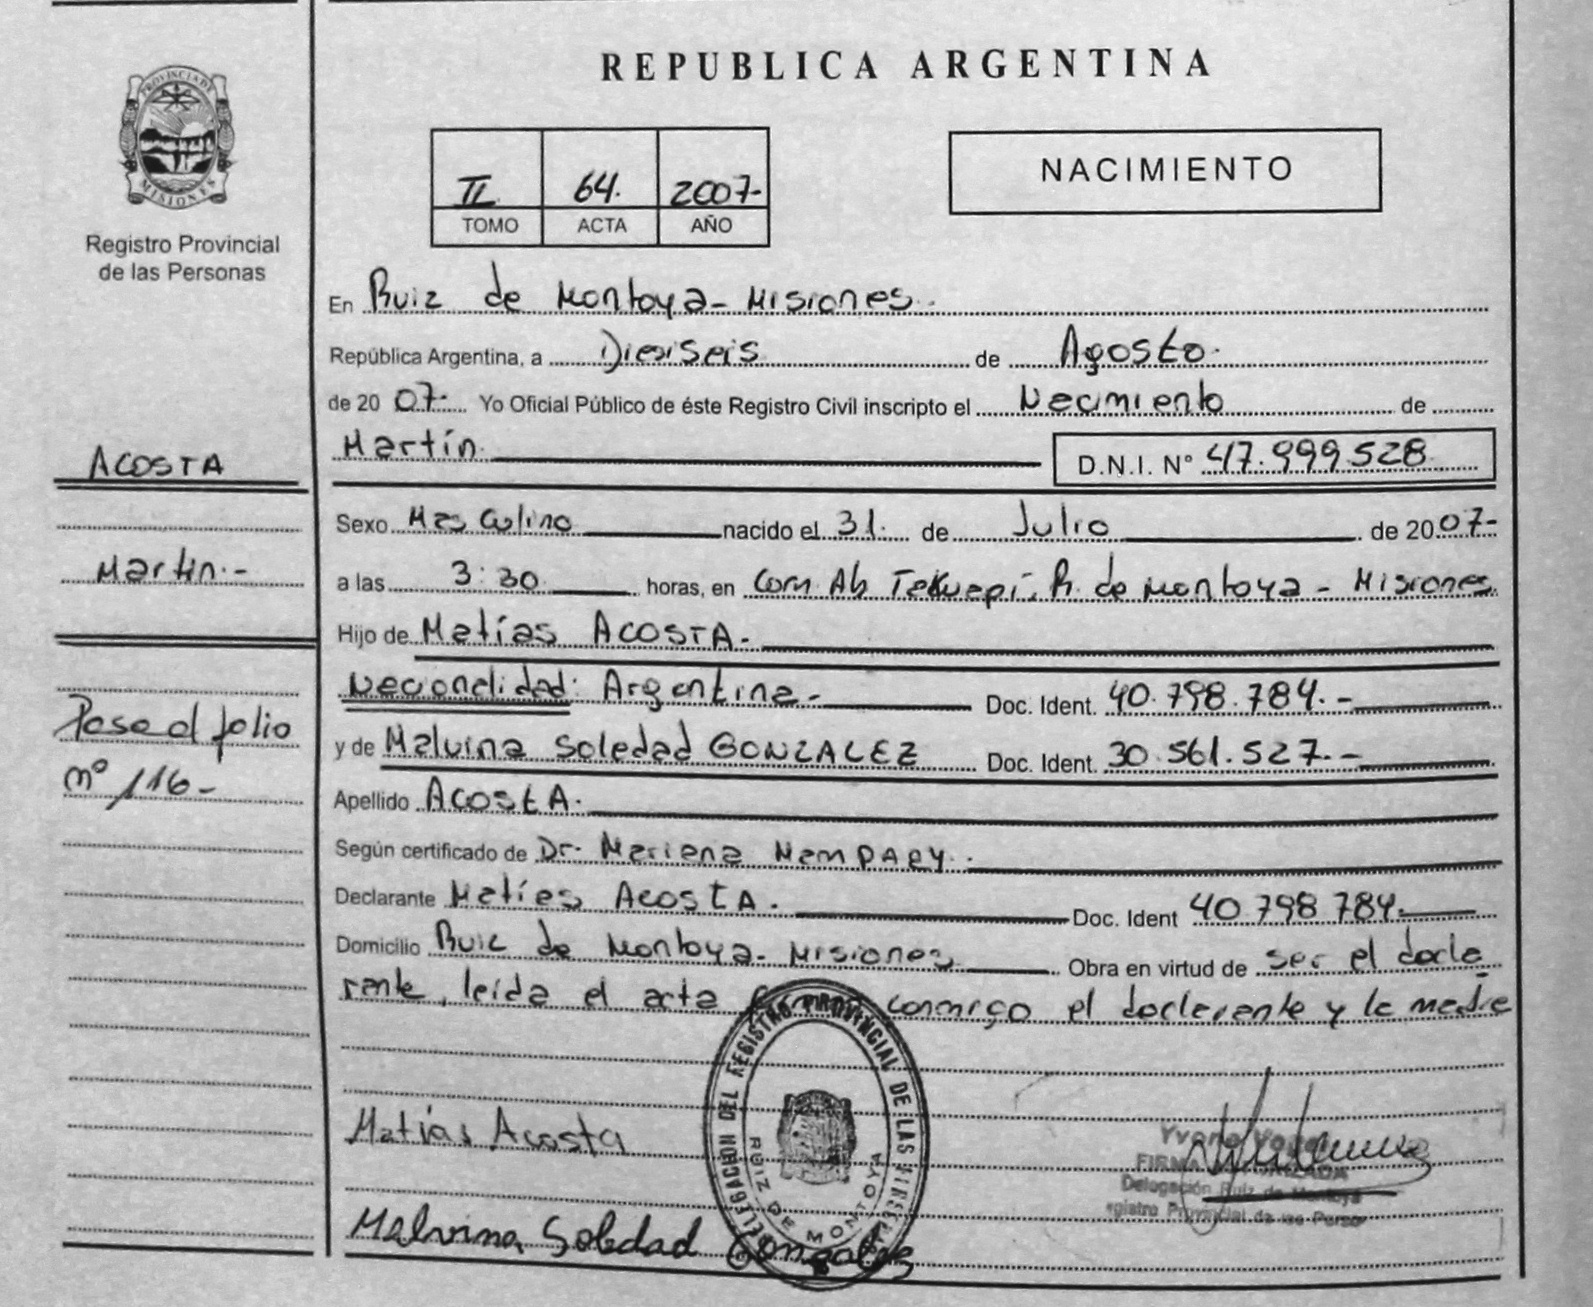 REPUBLICA ARGENTINA
PROVINCIA DE
MISIONES
Registro Provincial
de las Personas
II 64. 2007-
TOMO ACTA AÑO
NACIMIENTO
En Ruiz de Montoya - Misiones.
República Argentina, a Dieciseis de Agosto.
de 20 07- Yo Oficial Público de éste Registro Civil inscripto el Nacimiento de
Martín. D.N.I. N° 47.999.528
ACOSTA
Martín.-
Sexo Masculino nacido el 31. de Julio de 20 07-
a las 3:30 horas, en Com. Ab Tekuapí, R. de Montoya - Misiones.
Hijo de Matías ACOSTA.
Nacionalidad: Argentina.- Doc. Ident. 40.798.784.-
y de Malvina Soledad GONZALEZ Doc. Ident. 30.561.527.-
Pase al folio
nº 116-
Apellido ACOSTA.
Según certificado de Dr. Mariana
Declarante Matías ACOSTA. Doc. Ident 40.798.784.
Domicilio Ruiz de Montoya - Misiones Obra en virtud de ser el decla
rante, leída el acta conmigo el declarante y la madre
Matías Acosta
Malvina Soledad Gonzalez
DELEGACION DEL REGISTRO PROVINCIAL DE LAS
RUIZ DE MONTOYA
Delegación Ruiz de Montoya
Registro Provincial de las Perso